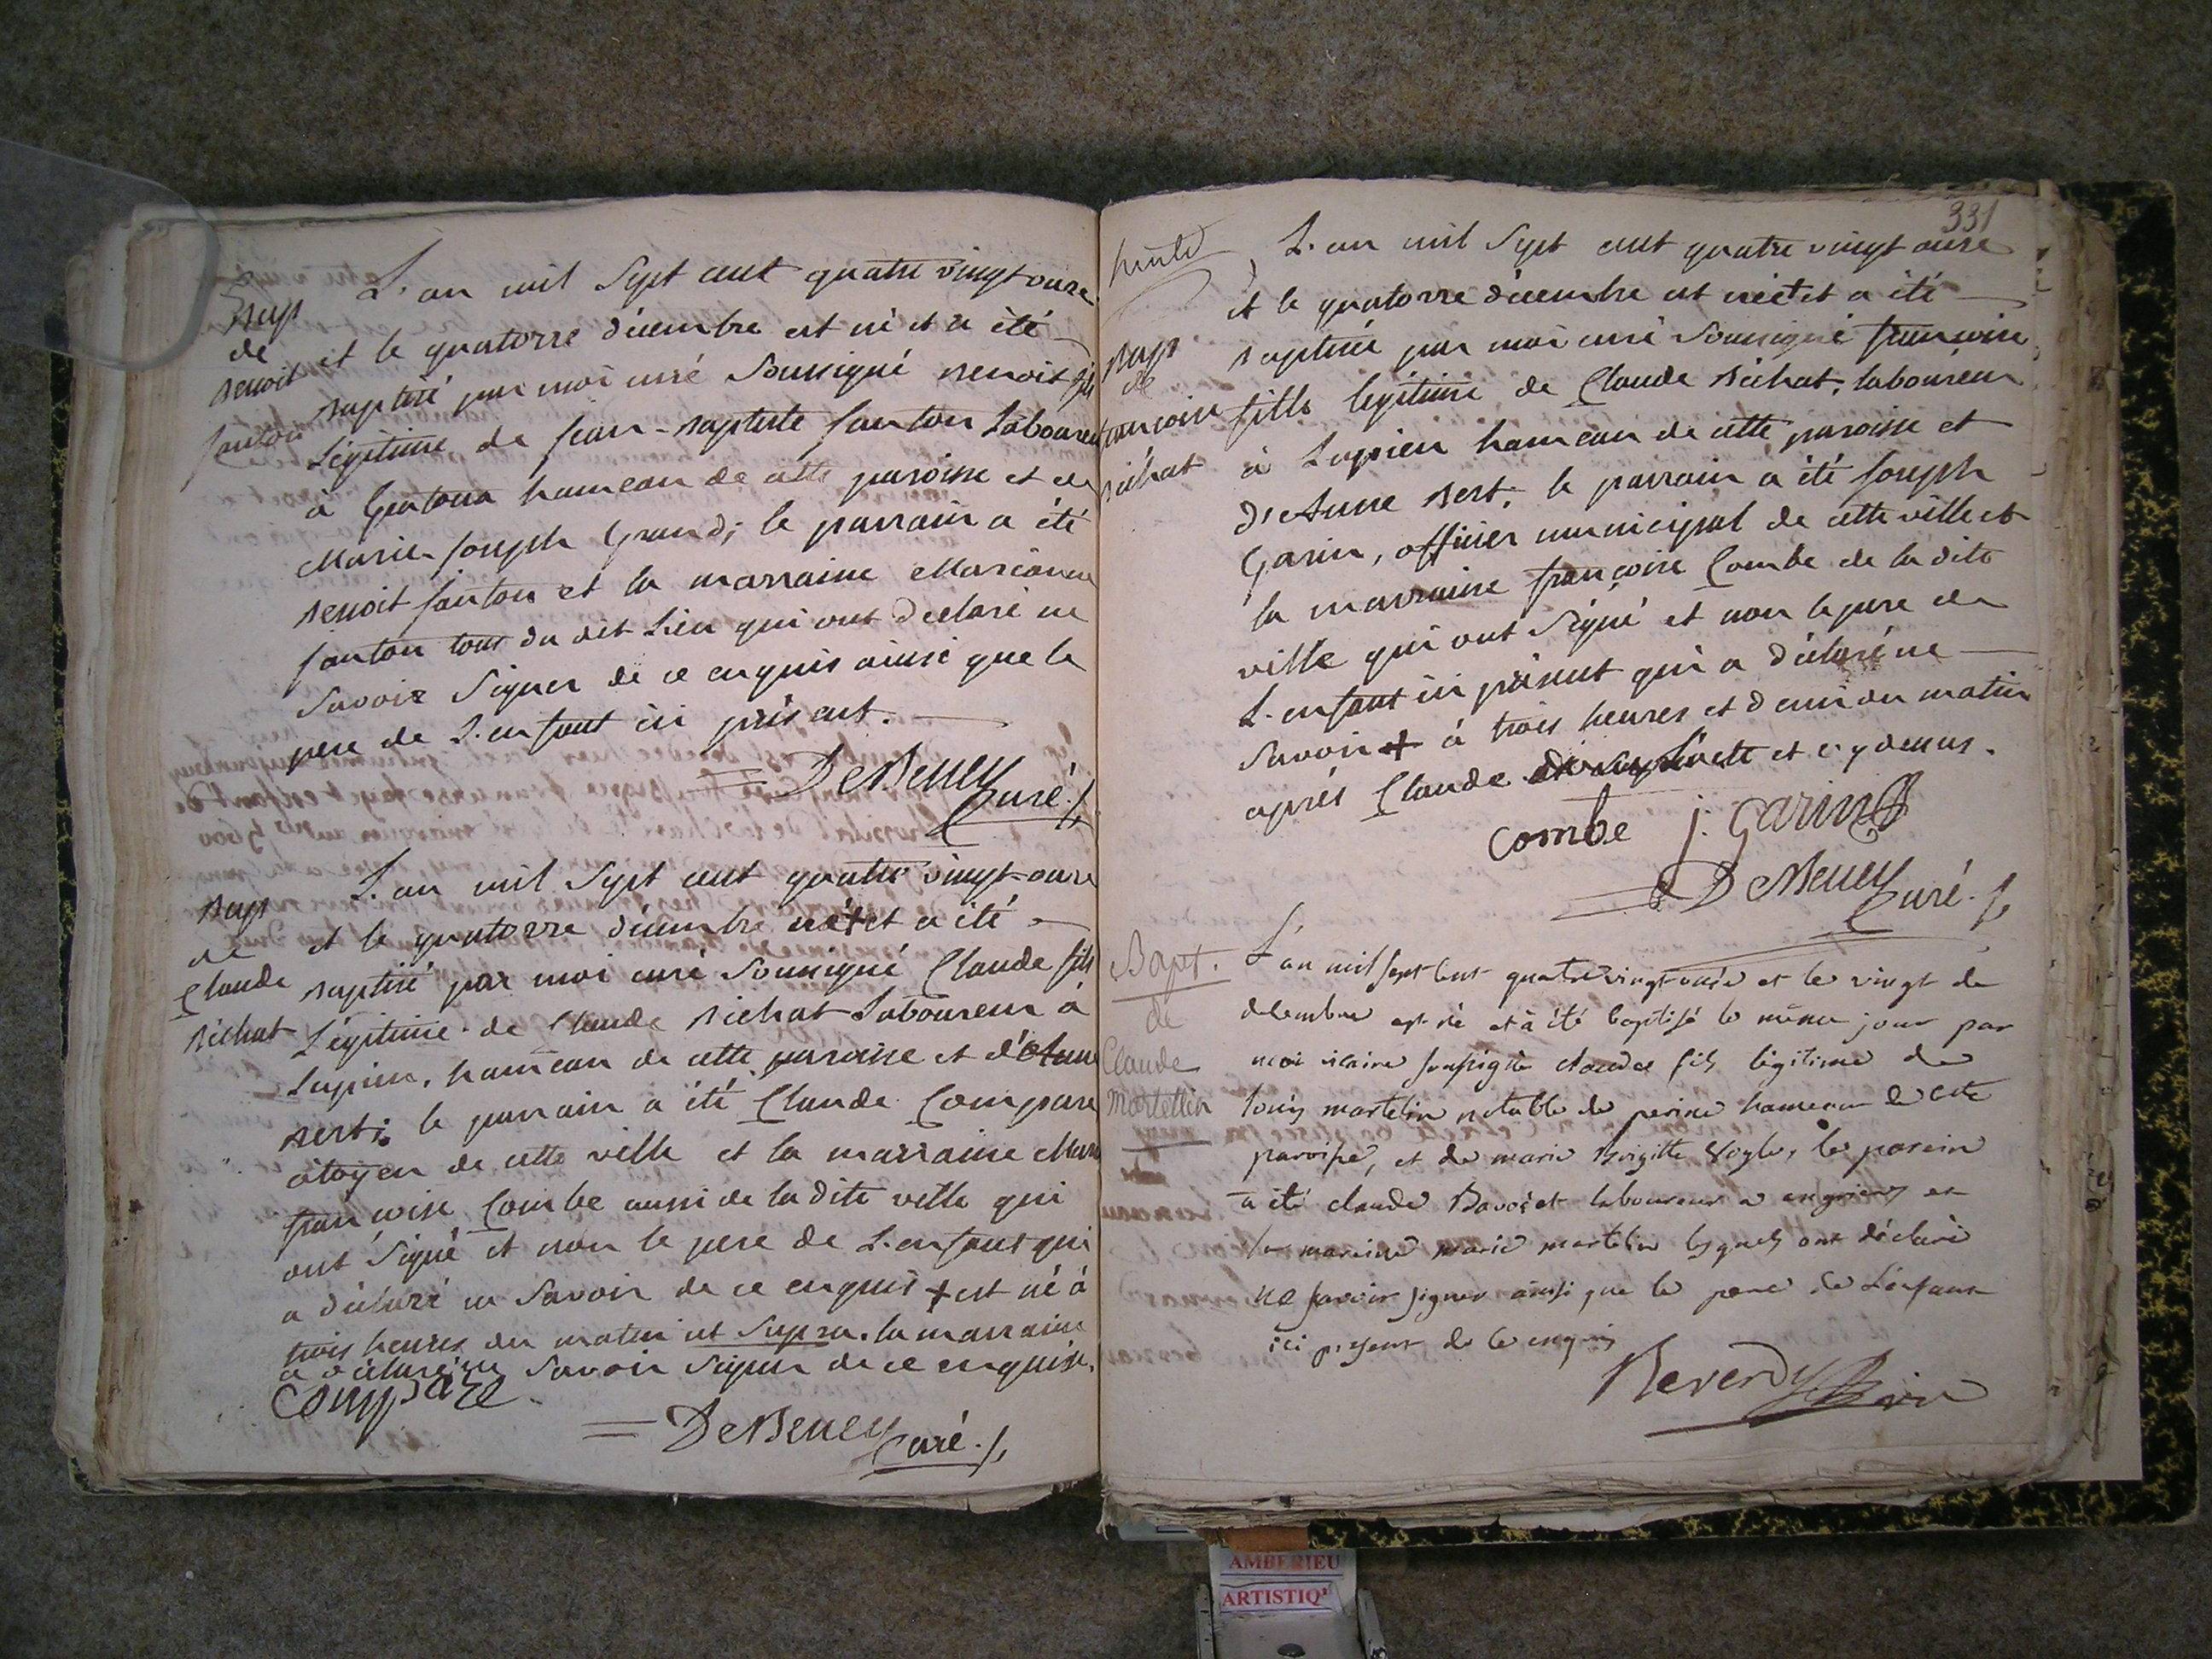 Bap
de
Benoit
fanton
L'an mil Sept cent quatre vingt onze
et le quatorze décembre est né et a été
Baptisé par moi curé Soussigné Benoit fils
Légitime de Jean-Baptiste fanton Laboureur
à hameau de cette paroisse et de
Marie-Joseph Grand; le parrain a été
Benoit fanton et la marraine Marianne
fanton tous du dit Lieu qui ont déclaré ne
Savoir Signer de ce enquis ainsi que le
pere de L'enfant ici présent.
DeBeney
Curé
Bap
de
Claude
Bichat
L'an mil Sept cent quatre vingt-onze
et le quatorze décembre né et a été
Baptisé par moi curé Soussigné Claude fils
Légitime de Claude Bichat Laboureur à
Lupieu, hameau de cette paroisse et d'Anne
Bert; le parrain a été Claude Compare
citoyen de cette ville et la marraine
françoise Combe aussi de la dite ville qui
ont Signé et non le pere de L'enfant qui
a déclaré ne Savoir de ce enquis + est né à
trois heures du matin ut Supra. la marraine
a déclaré ne Savoir Signer de ce enquise.
Compare
DeBeney
Curé
331
Bap
de
françoise
Bichat
L'an mil Sept cent quatre vingt onze
et le quatorze décembre est née et a été
Baptisée par moi curé Soussigné françoise
fille légitime de Claude Bichat, laboureur
à Lupieu hameau de cette paroisse et
d'Anne Bert; le parrain a été Joseph
Garin, officier municipal de cette ville et
la marraine françoise Combe de la dite
ville qui ont Signé et non le pere de
L'enfant ici présent qui a déclaré ne
Savoir + à trois heures et demi du matin
après Claude et cy dessus.
Combe J. Garin
DeBeney
Curé
Bapt.
de
Claude
Martellin
L'an mil sept cent quatre vingt-onze et le vingt de
décembre est né et a été baptisé le même jour par
moi vicaire soussigné claude fils légitime de
louis martelin notable de hameau de cette
paroisse, et de marie Brigitte le parein
a été claude laboureur a et
la mareine marie martelin lesquels ont déclaré
ne savoir signer ainsi que le pere de L'enfant
ici présent de ce enquis
Reverdy